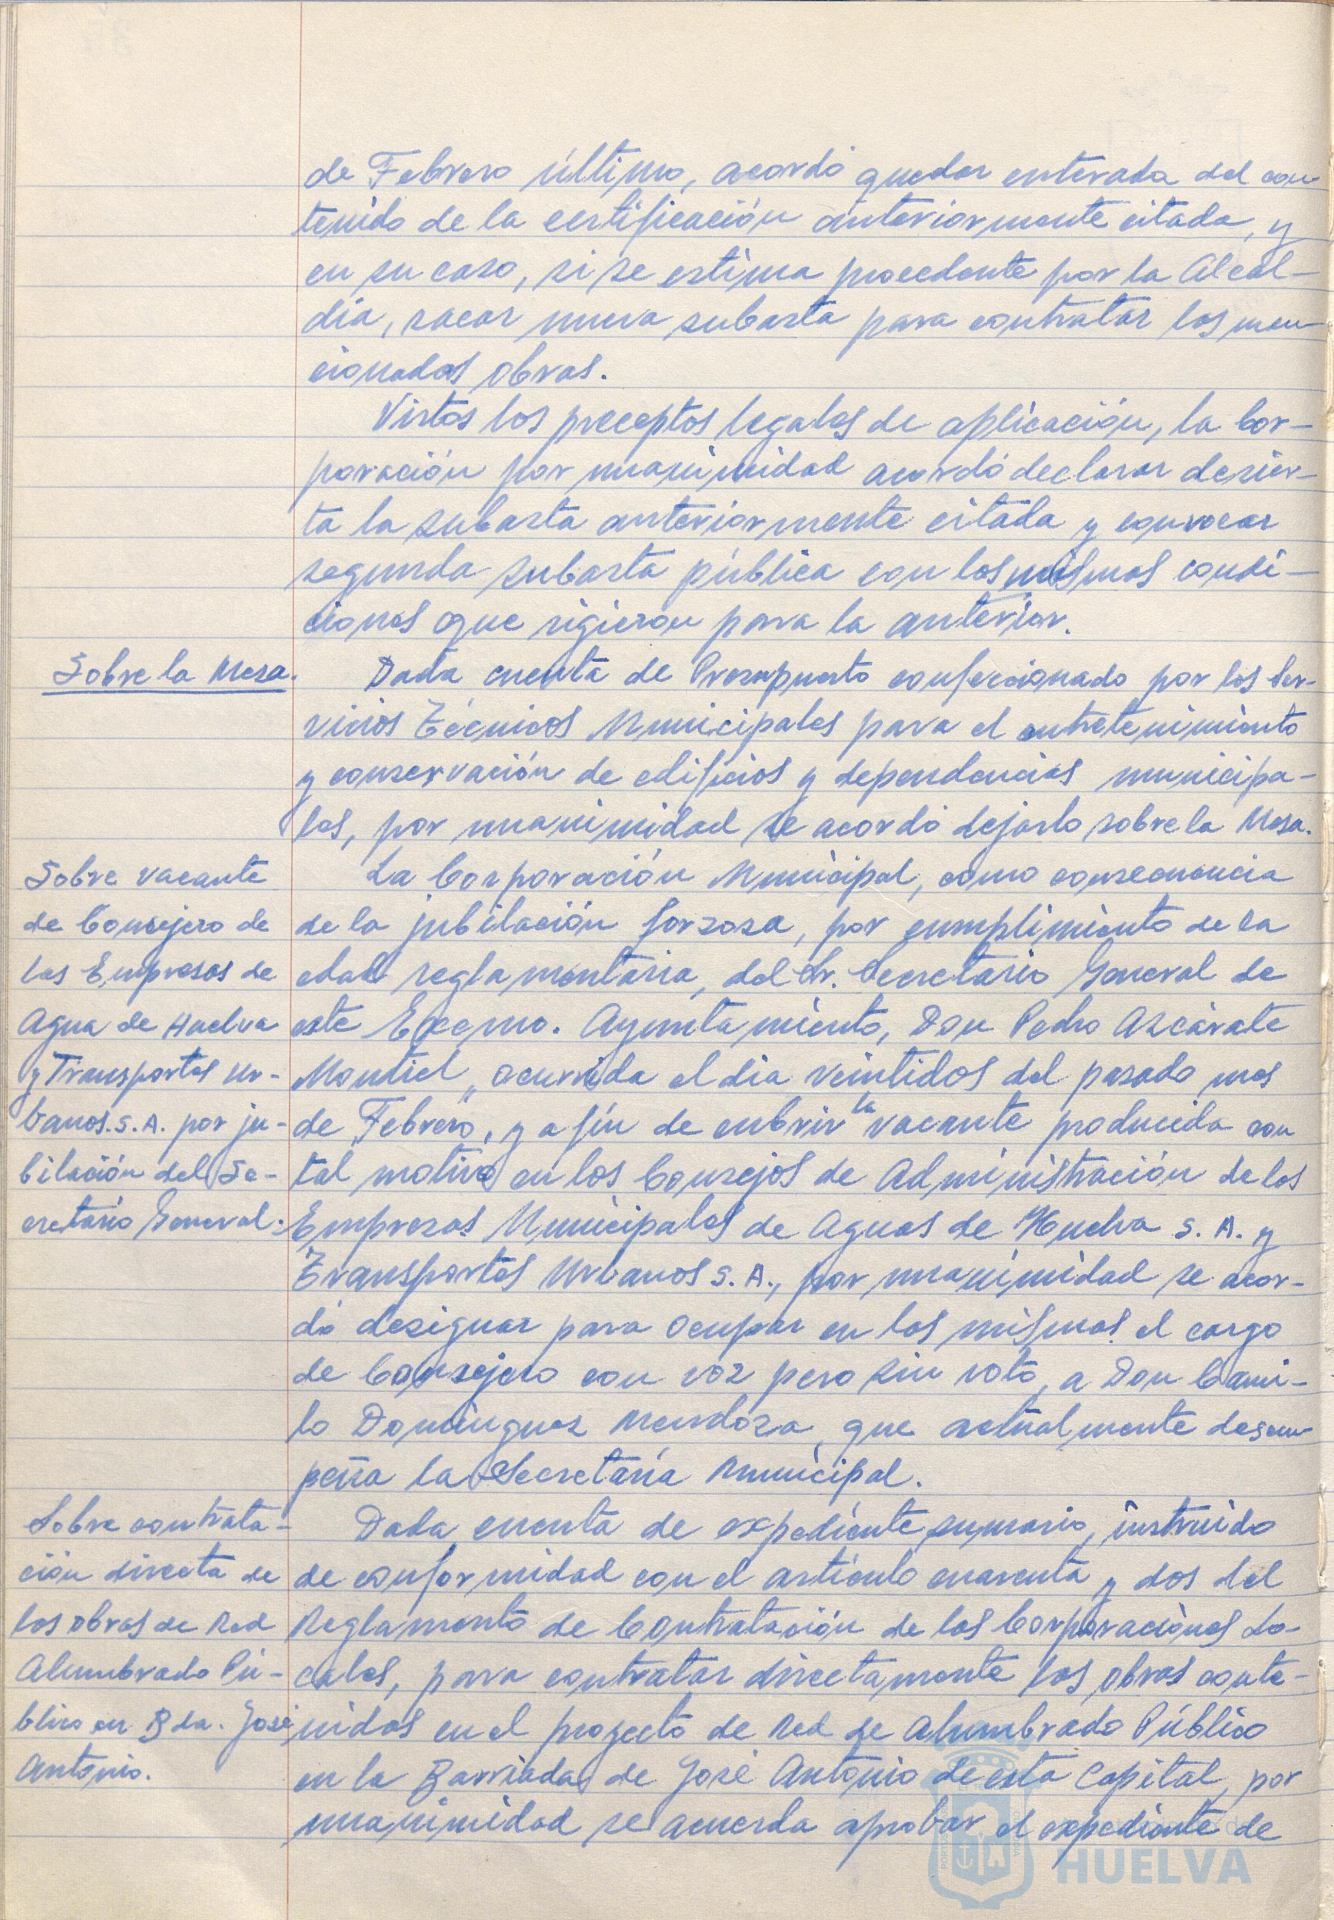 de Febrero último, acordó quedar enterada del con-
tenido de la certificación anteriormente citada, y
en su caso, si se estima procedente por la Alcal-
día, sacar nueva subasta para contratar las men-
cionadas obras.
Vistos los preceptos legales de aplicación, la Cor-
poración por unanimidad acordó declarar desier-
ta la subasta anteriormente citada y convocar
segunda subasta pública con las mismas condi-
ciones que rigieron para la anterior.
Sobre la Mesa.
Dada cuenta de Presupuesto confeccionado por los Ser-
vicios Técnicos Municipales para el entretenimiento
y conservación de edificios y dependencias municipa-
les, por unanimidad se acordó dejarlo sobre la Mesa.
Sobre vacante
de Consejero de
las Empresas de
Agua de Huelva
y Transportes Ur-
banos. S. A. por ju-
bilación del Se-
cretario General.
La Corporación Municipal, como consecuencia
de la jubilación forzosa, por cumplimiento de la
edad reglamentaria, del Sr. Secretario General de
este Excmo. Ayuntamiento, Don Pedro Azcárate
Montiel, ocurrida el día veintidos del pasado mes
de Febrero, y a fín de cubrir la vacante producida con
tal motivo en los Consejos de Administración de las
Empresas Municipales de Aguas de Huelva S. A. y
Transportes Urbanos S. A., por unanimidad se acor-
dó designar para ocupar en las mismas el cargo
de Consejero con voz pero sin voto, a Don Cami-
lo Domínguez Mendoza, que actualmente desem-
peña la Secretaría Municipal.
Sobre contrata-
ción directa de
las obras de Red
Alumbrado Pú-
blico en Bda. José
Antonio.
Dada cuenta de expediente sumario, instruido
de conformidad con el artículo cuarenta y dos del
Reglamento de Contratación de las Corporaciones Lo-
cales, para contratar directamente las obras conte-
nidas en el proyecto de Red de Alumbrado Público
en la Barriada de José Antonio de esta Capital, por
unanimidad se acuerda aprobar el expediente de
HUELVA